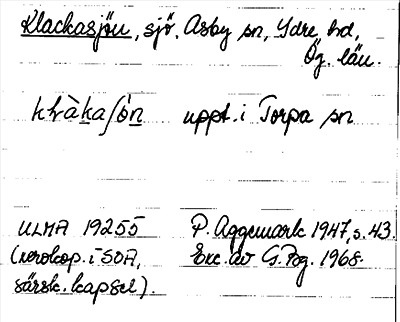 Klackasjön, sjö. Asby sn, Ydre hd,
Ög. län.
klràkaʃòn uppt. i Torpa sn
ULMA 19255 P. Aggemark 1947, s. 43.
(xerokop. i SOA, Exc. av G. Pbg. 1968.
särsk. kapsel).